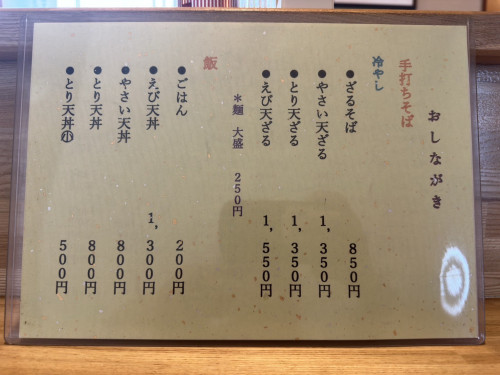 おしながき
手打ちそば
冷やし
●ざるそば 850円
●やさい天ざる 1,350円
●とり天ざる 1,350円
●えび天ざる 1,550円
*麺 大盛 250円
飯
●ごはん 200円
●えび天丼 1,300円
●やさい天丼 800円
●とり天丼 800円
●とり天丼㊥ 500円